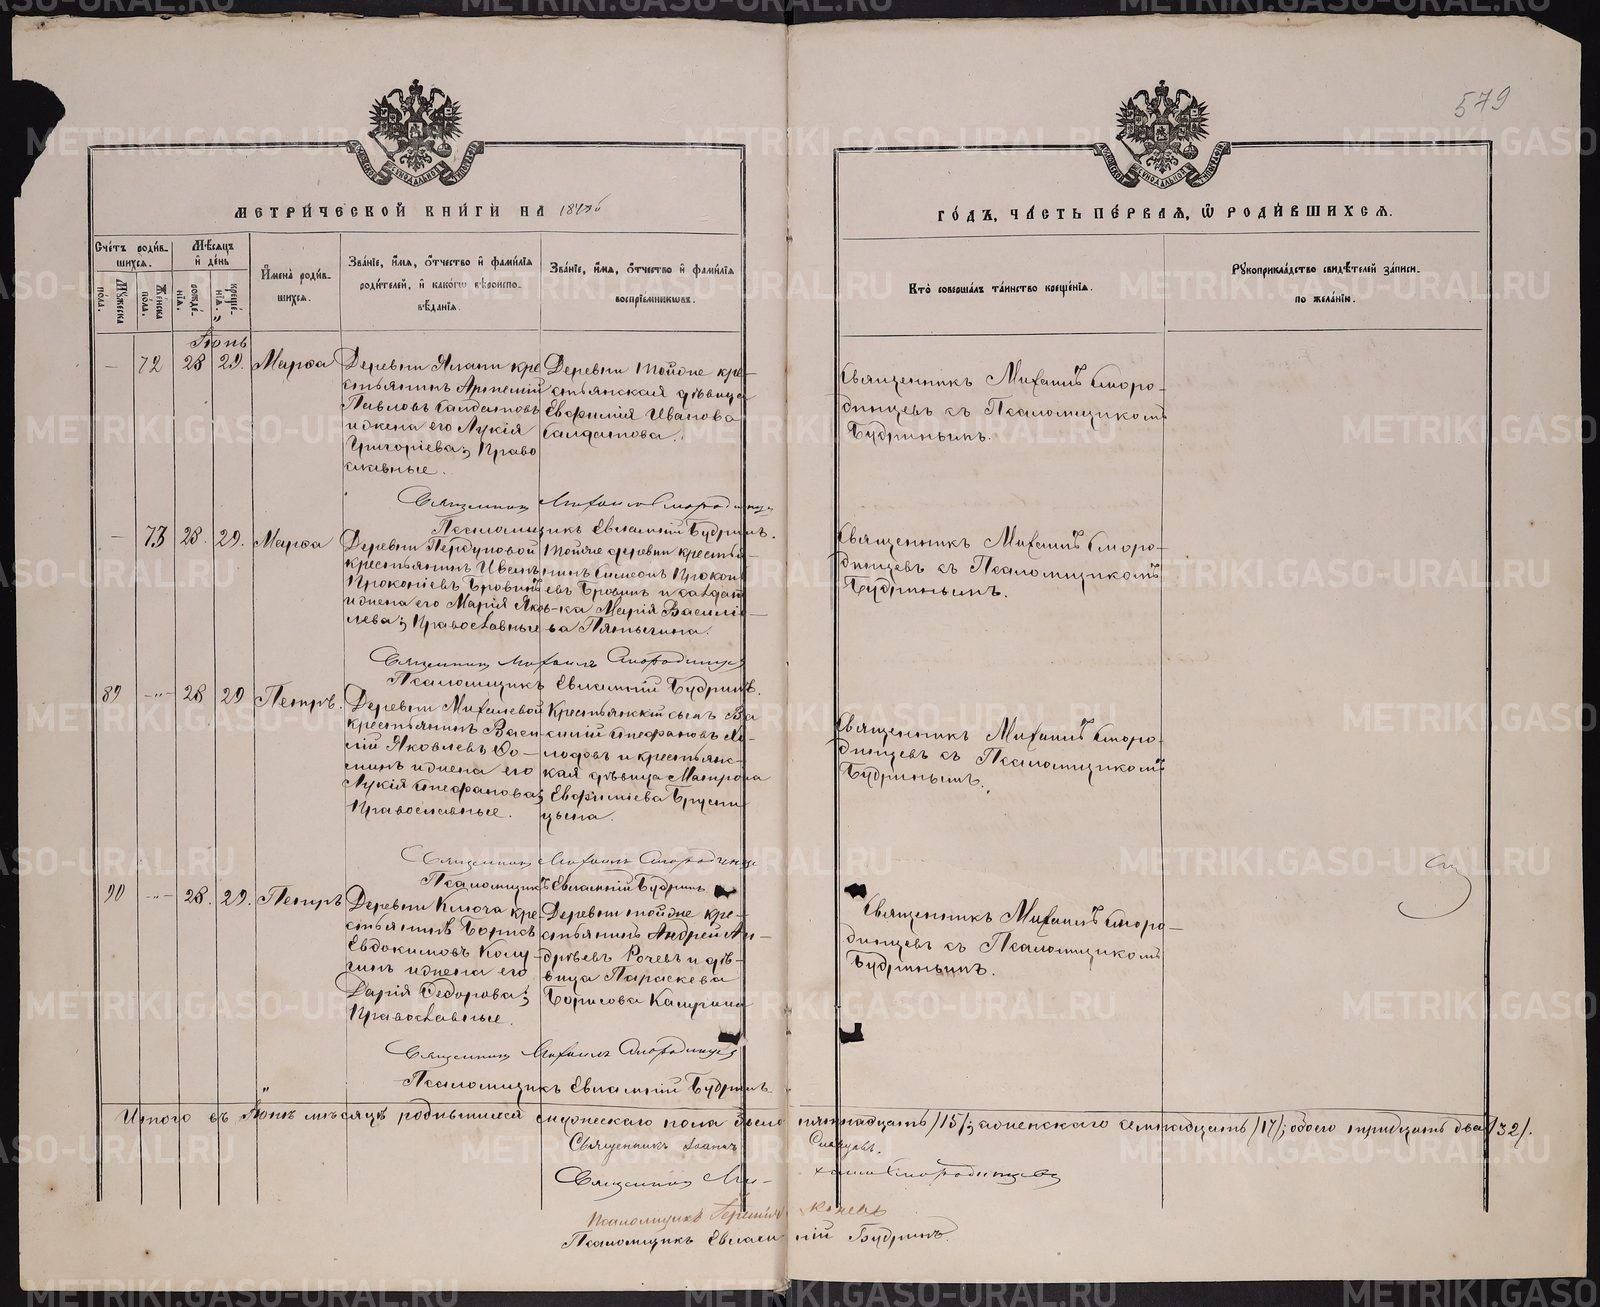 579
МЕТРИ́ЧЕСКОЙ КНИ́ГИ НА
ГО́ДЪ, ЧА́СТЬ ПЕ́РВАЯ, Ѡ РОДИ́ВШИХСЯ.
Сче́тъ роди́в-
шихся.
Му́жеска по́ла.
Же́нска по́ла.
Мѣсяцъ и де́нь
рожде́-
нія.
креще́-
нія.
Имена́ роди́в-
шихся.
Зва́ніе, и́мя, о́тчество и фами́лія
роди́телей, и како́гѡ вѣроиспо-
вѣ́данія.
Зва́ніе, и́мя, о́тчество и фами́лія
воспріе́мникѡвъ.
Кто̀ соверша́лъ та́инство креще́нія.
Рукоприкла́дство свидѣ́телей за́писи
по жела́нію.
Іюнь
— 72 28 29. Марѳа
Деревни Ялани кре
стьянинъ Артемій
Павловъ Салдатовъ
и жена его Лукія
Григоріева; Право
славные.
Деревни тойже кре-
стьянская дѣвица
Евфимія Иванова
Салдатова.
Священникъ Михаилъ Сморо-
динцевъ съ Псаломщикомъ
Будринымъ.
Священникъ Михаилъ Смородинцев
Псаломщикъ Евлампій Будринъ.
— 73 28. 29. Марѳа
Деревни Пердуновой
крестьянинъ Иванъ
Прокопіевъ Бровинъ
и жена его Марія Яков-
лева; Православные
Тойже деревни крестья-
нинъ Симеонъ Прокопі
евъ Бровинъ и салдат-
ка Марія Василіе-
ва Пятыгина.
Священникъ Михаилъ Сморо-
динцевъ съ Псаломщикомъ
Будринымъ.
Священник Михаилъ Смородинцев
Псаломщикъ Евлампій Будринъ.
89 —"— 28 29 Петръ.
Деревни Михалевой
крестьянинъ Васи
лій Яковлевъ Ѳо-
минъ и жена его
Лукія Стефанова;
Православные.
Крестьянскій сынъ Ва
силій Стефановъ Хо-
лодовъ и крестьянс-
кая дѣвица Матрона
Евфиміева Брусни
цына.
Священникъ Михаилъ Сморо-
динцевъ съ Псаломщикомъ
Будринымъ.
Священник Михаилъ Смородинцев
Псаломщикъ Евлампій Будринъ
90 —"— 28. 29. Петръ
Деревни Ключа кре-
стьянинъ Борисъ
Евдокимовъ
и жена его
Дарія Ѳедорова;
Православные.
Деревни тойже кре-
стьянинъ Андрей Ан-
дреевъ Рочевъ и дѣ-
вица Параскева
Борисова
Священникъ Михаилъ Сморо-
динцевъ съ Псаломщикомъ
Будринымъ.
Священник Михаилъ Смородинцев
Псаломщикъ Евлампій Будринъ.
Итого въ Іюнѣ мѣсяцѣ родившихся мужескаго пола было пятнадцать /15/; а женскаго семнадцать /17/; обоего тридцать два /32/.
Священникъ Іоаннъ
Священник Михаилъ Смородинцев
Псаломщикъ
Псаломщикъ Евлампій Будринъ.
METRIKI.GASO-URAL.RU